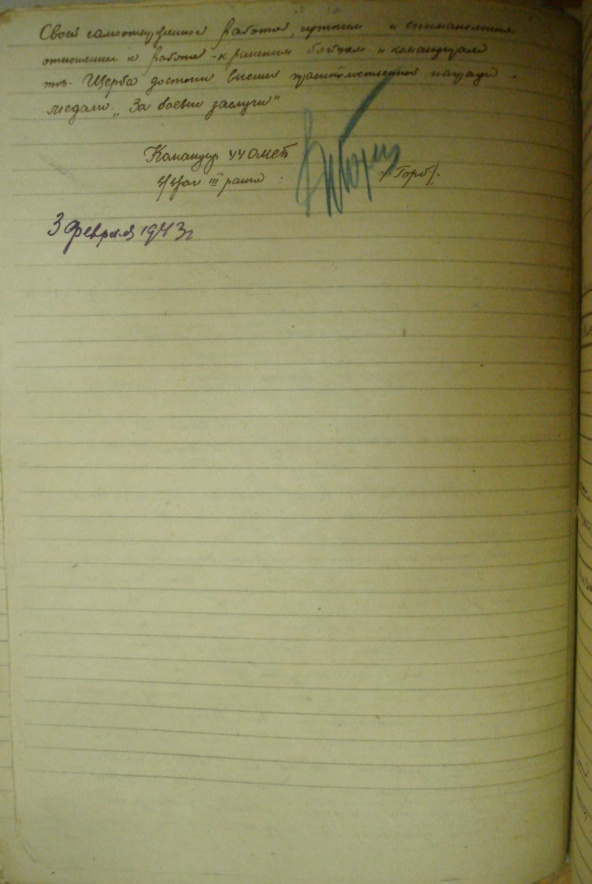 Своей самоотверженной работой, чутким и внимательным
отношением к работе - к раненым бойцам и командирам
тов. Щерба достоин высшей правительственной награды -
медали „За боевые заслуги“
Командир 44 ОМСБ
в/врач III ранга: /Горб/.
3 февраля 1943 г